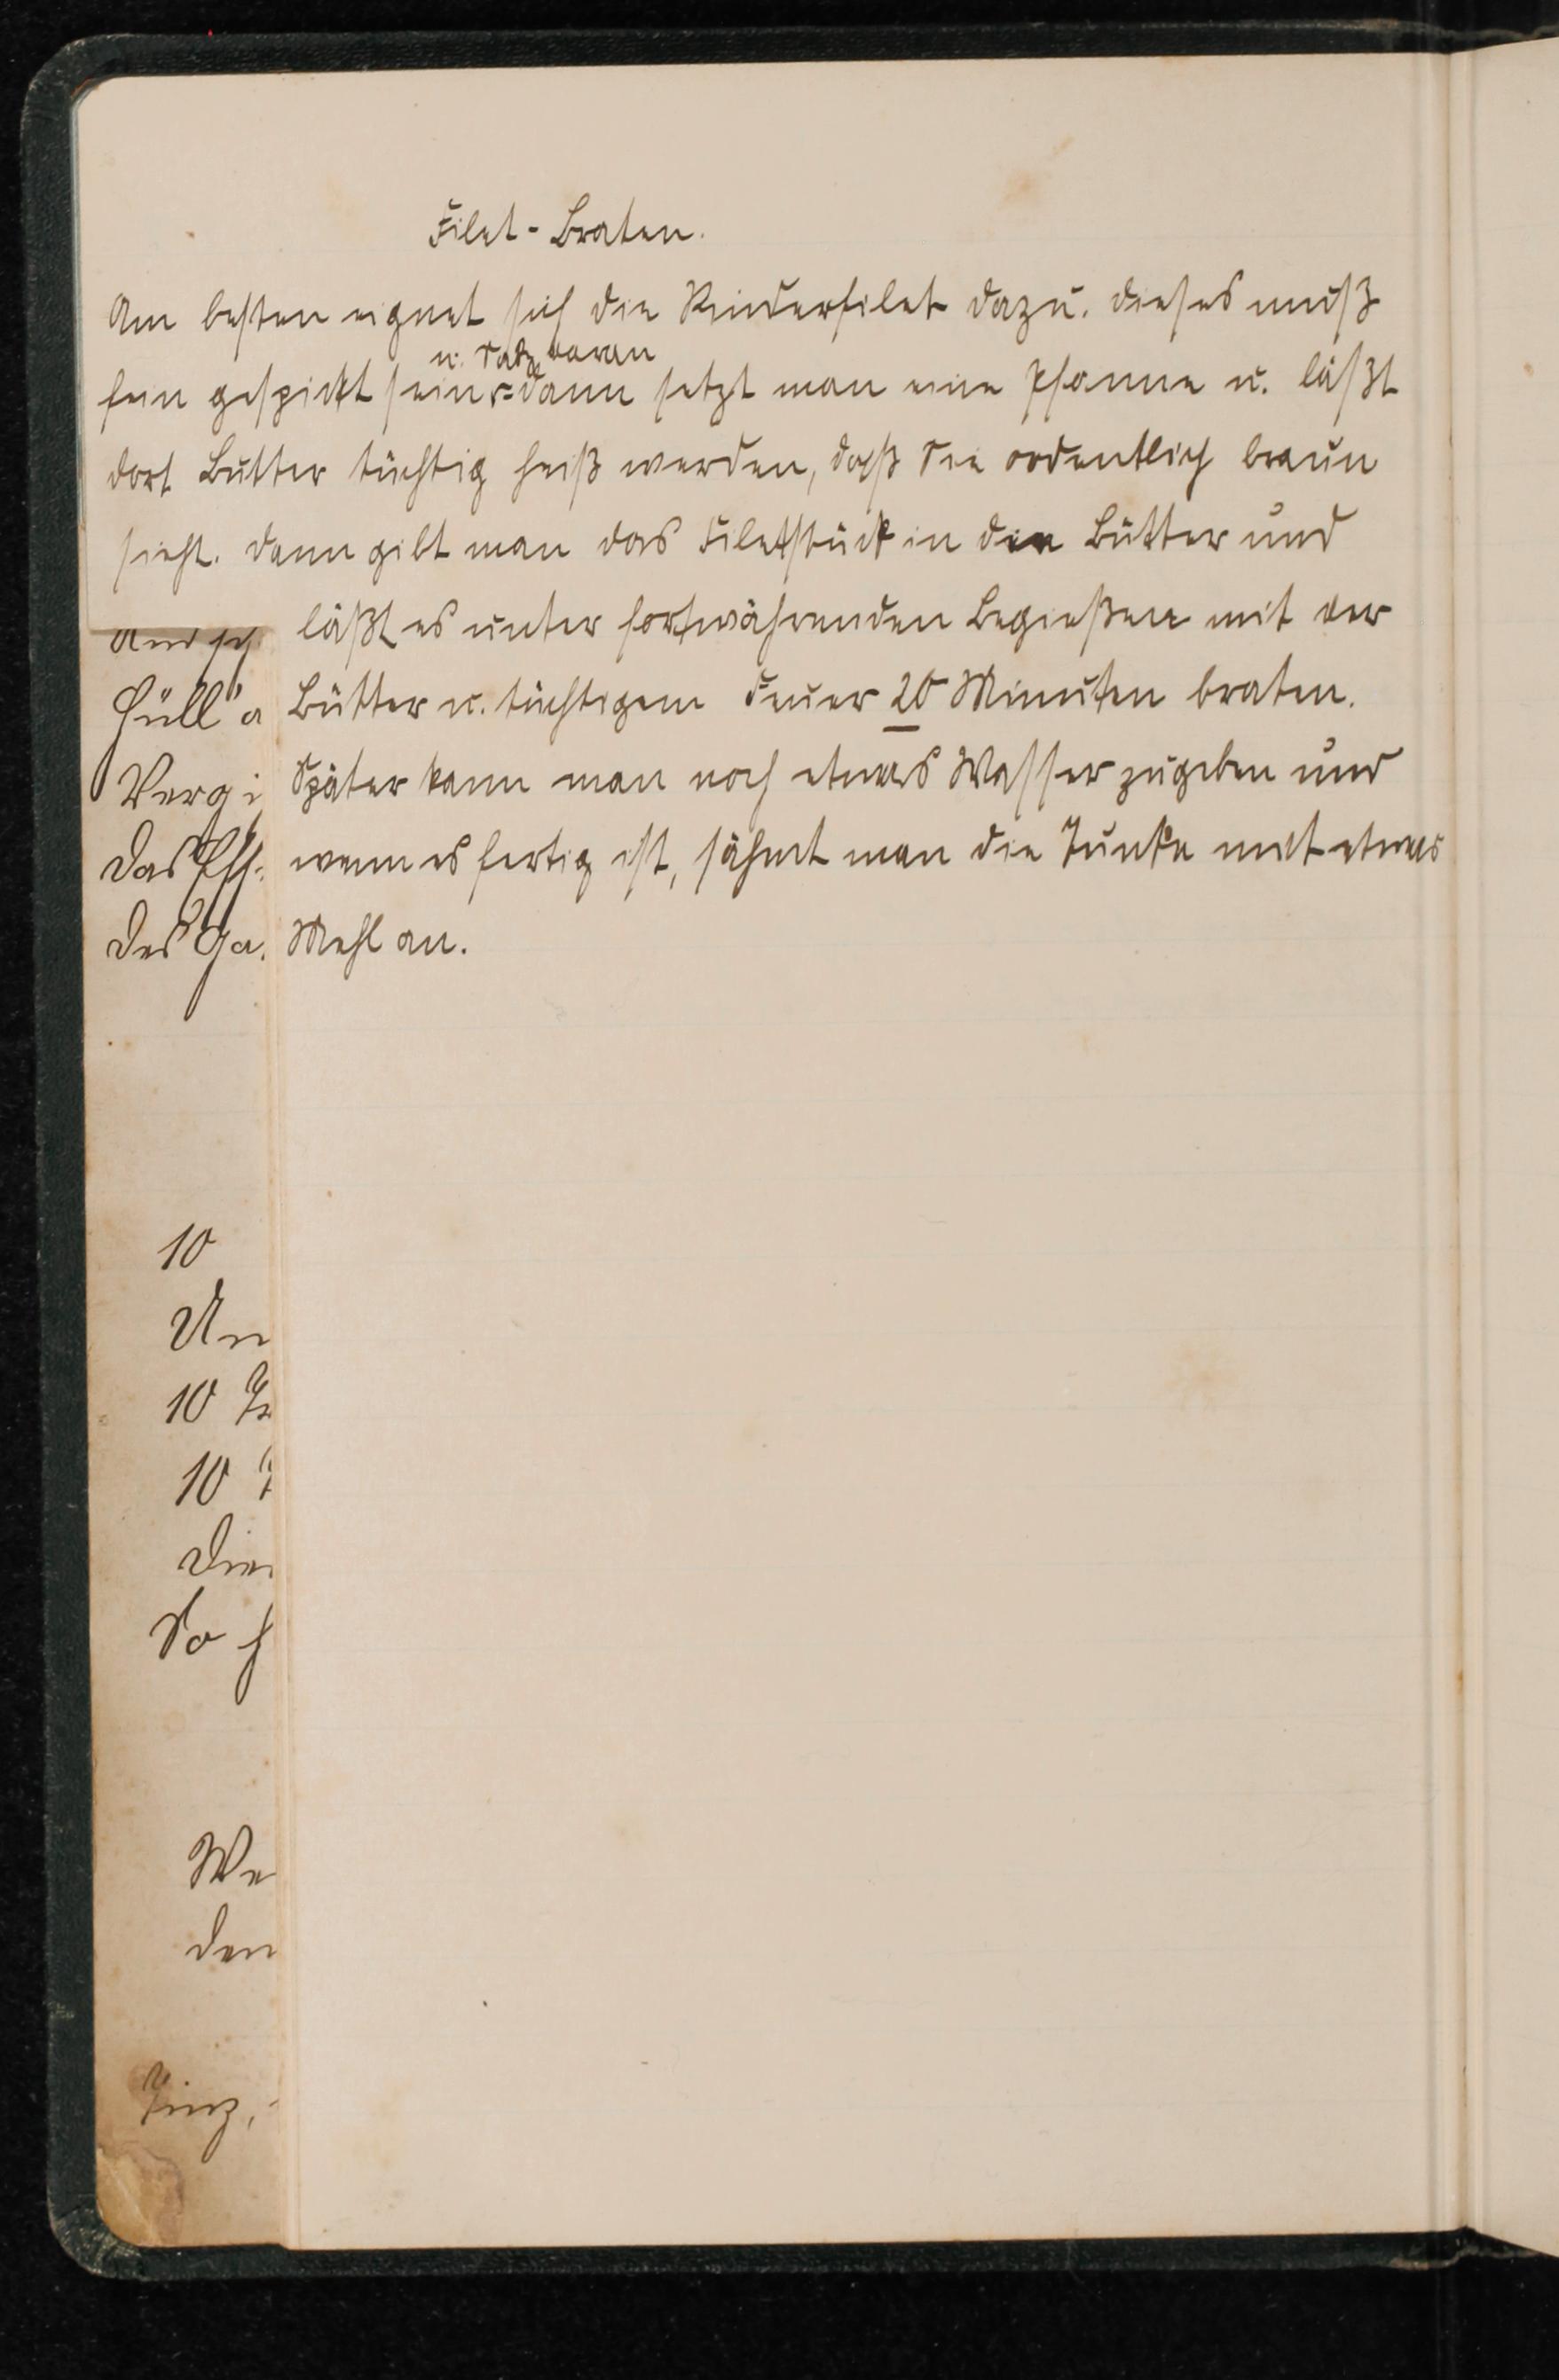 Filet-Braten.
Am besten eignet sich die Rinderfilet dazu. dieses muß
u. Salz daran
fein gespickt sein dann setzt man eine Pfanne u. läßt
dort Butter tüchtig heiß werden, daß sie ordentlich braun
sieht. dann gibt man das Filetstück in die Butter und
läßt es unter fortwährenden Begießen mit der
Butter u. tüchtigem Feuer 20 Minuten braten.
Später kann man noch etwas Wasser zugeben und
wenn es fertig ist, sähmt man die Tunke mit etwas
Mehl an.
Hüll' a
Verg i
Das Ess
Des Ga
10
Un
10
10
Die
So h
We
den